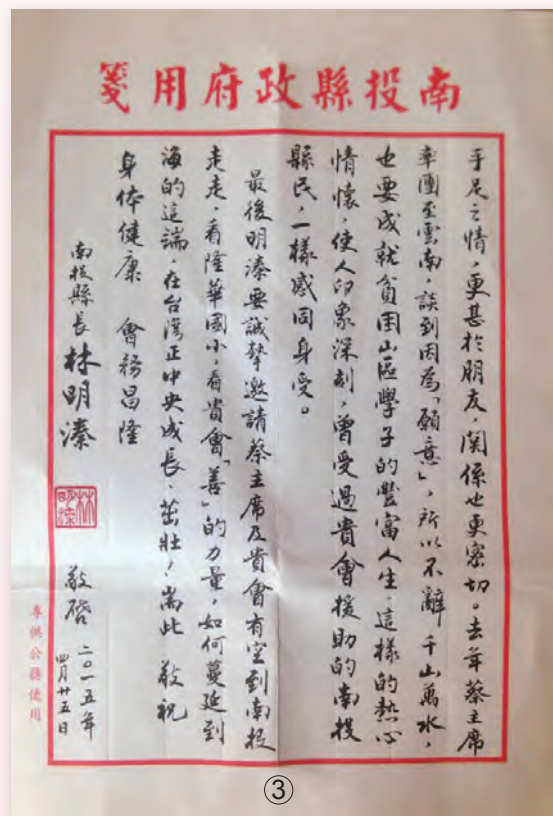 南投縣政府用箋
手足之情，更甚於朋友，関係也更密切。去年蔡主席
率團至雲南，談到因為「願意」，所以不辭千山萬水，
也要成就貧困山區學子的豐富人生，這樣的熱心
情懷，使人印象深刻，曾受過貴會援助的南投
縣民，一樣感同身受。
最後明溱要誠摯邀請蔡主席及貴會有空到南投
走走，看隆華國小，看貴會「善」的力量，如何蔓延到
海的這端，在台灣正中央成長，茁壯！耑此 敬祝
身体健康 會務昌隆
南投縣長 林明溱 敬啓 二〇一五年
四月廿五日
林明溱
專供公務使用
③